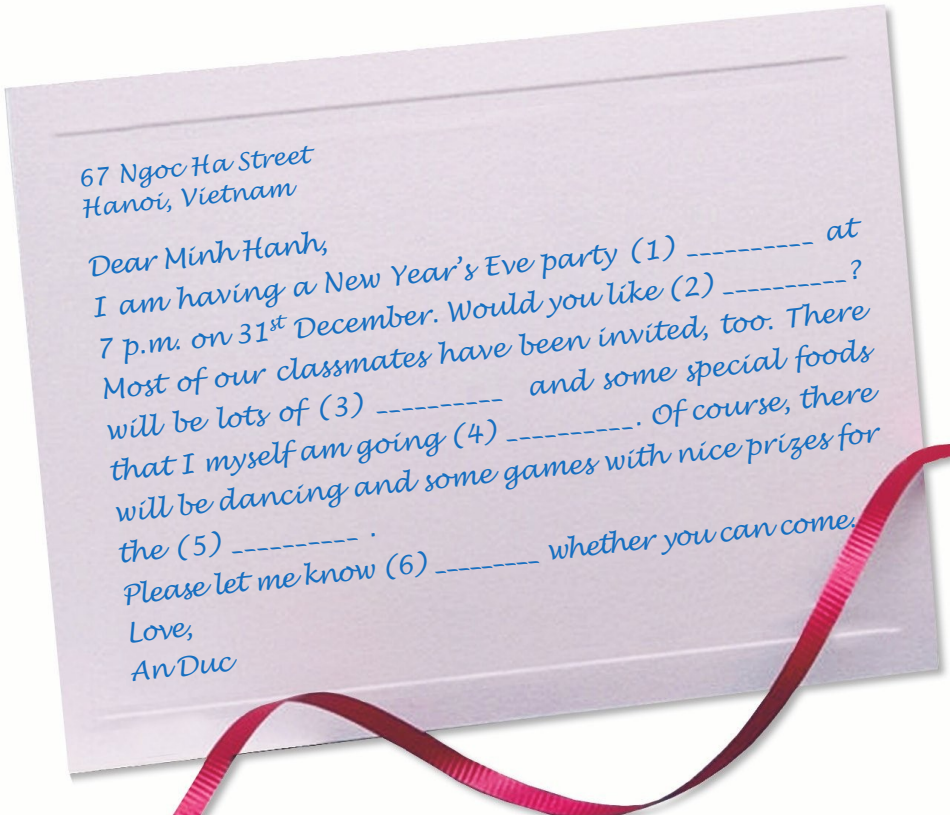 67 Ngoc Ha Street
Hanoi, Vietnam
Dear Minh Hanh,
I am having a New Year's Eve party (1) __________ at
7 p.m. on 31st December. Would you like (2) __________?
Most of our classmates have been invited, too. There
will be lots of (3) __________ and some special foods
that I myself am going (4) __________. Of course, there
will be dancing and some games with nice prizes for
the (5) __________ .
Please let me know (6) _________ whether you can come.
Love,
An Duc